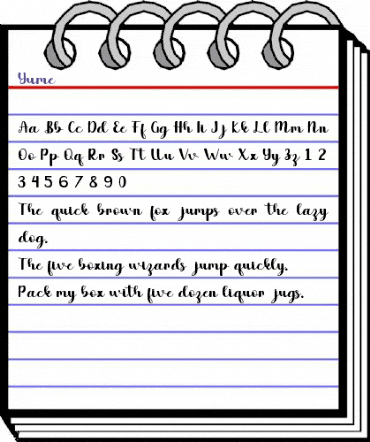 Yume
Aa Bb Cc Dd Ee Ff Gg Hh Ii Jj Kk Ll Mm Nn
Oo Pp Qq Rr Ss Tt Uu Vv Ww Xx Yy Zz 1 2
3 4 5 6 7 8 9 0
The quick brown fox jumps over the lazy
dog.
The five boxing wizards jump quickly.
Pack my box with five dozen liquor jugs.